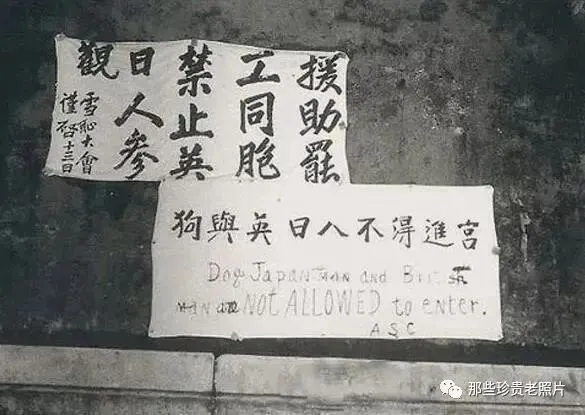 援助罷
工同胞
禁止英
日人參
觀
雪恥大會
謹啓十三日
狗與英日人不得進宮
Dog JAPANMAN and British
MAN are NOT ALLOWED to enter.
ASC
那些珍贵老照片